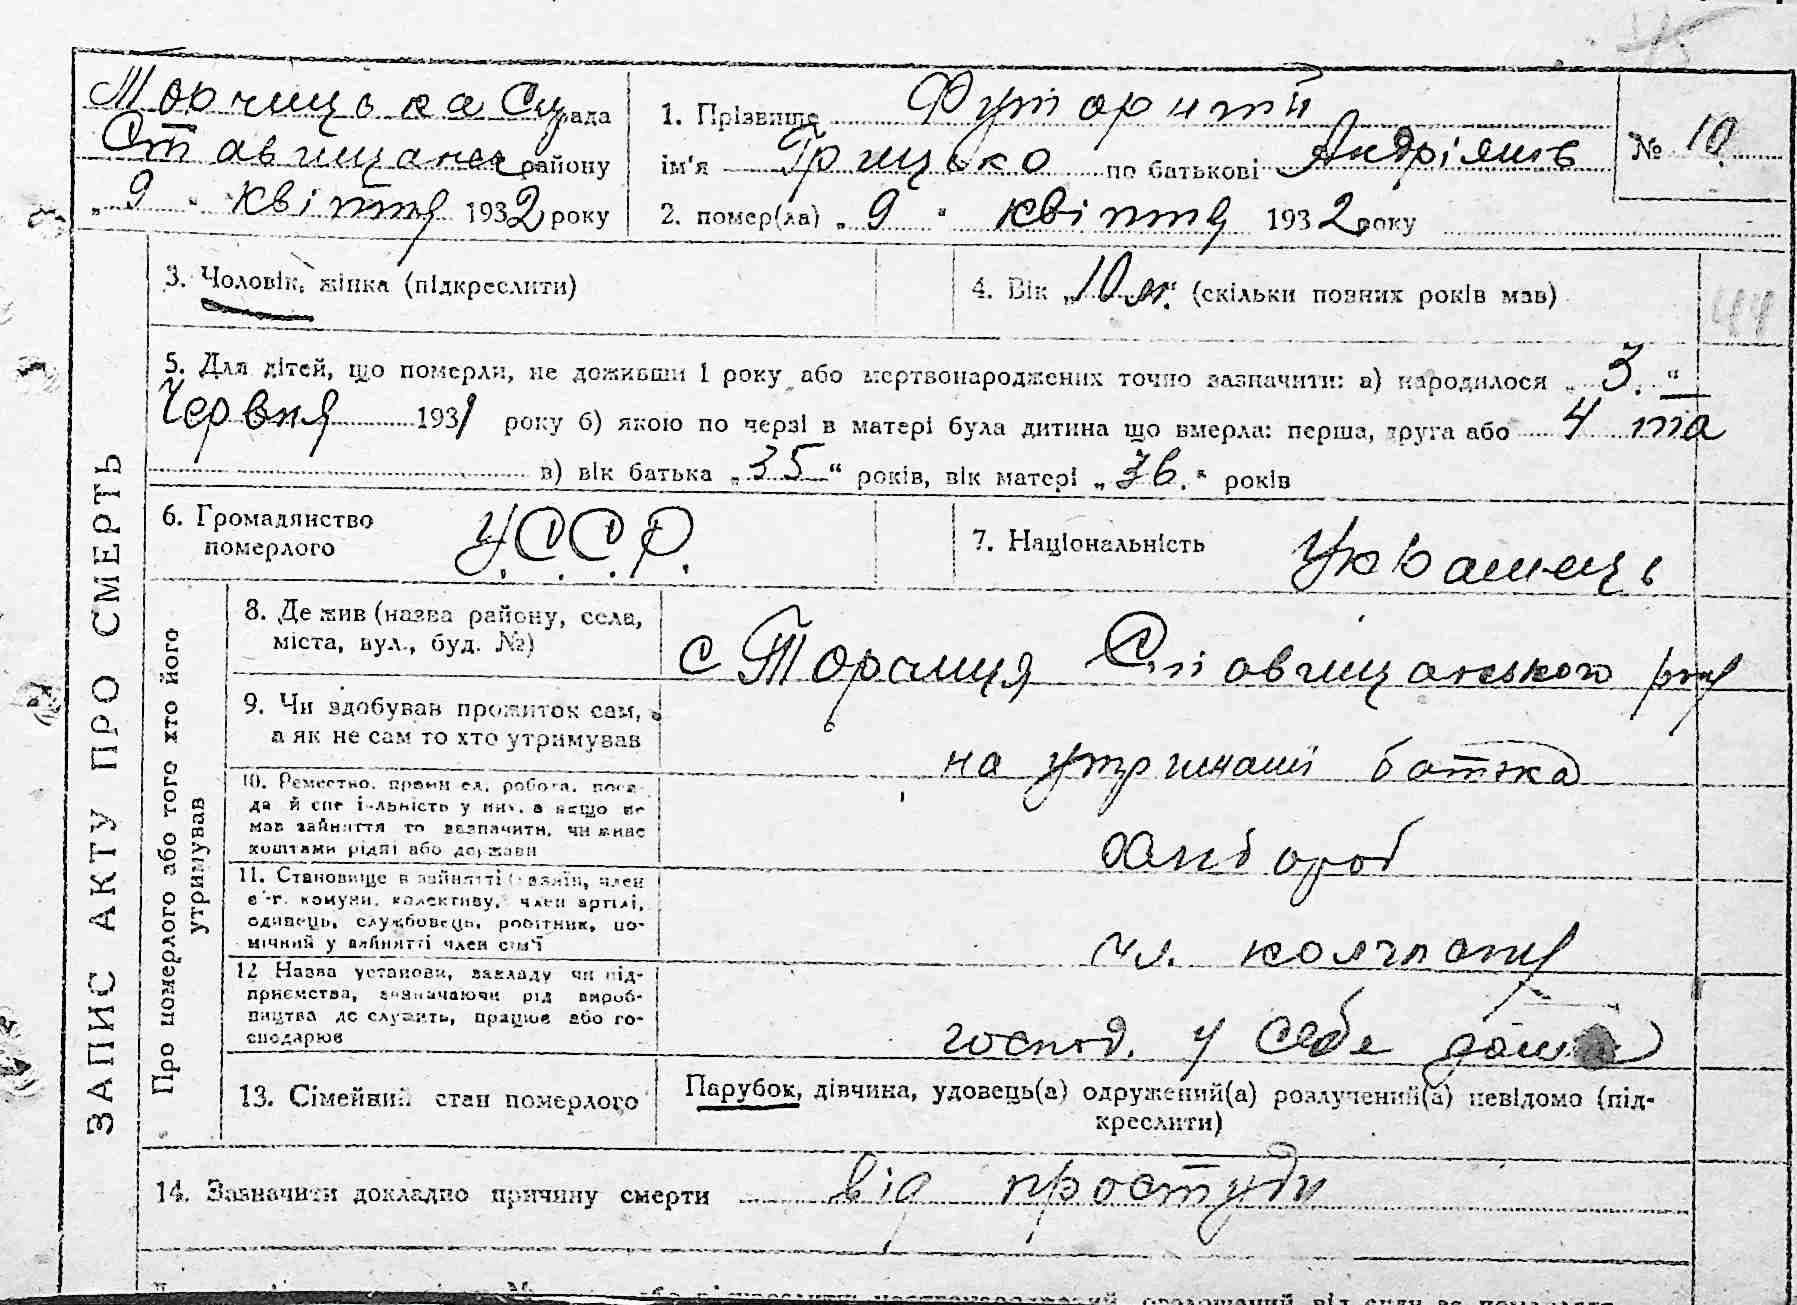 Торчицька Сільрада
Ставищанського району
„ 9 “ квітня 1932 року
1. Прізвище Футорний
ім'я Грицько по батькові Андріянів
2. помер(ла) „ 9 “ квітня 1932 року
№ 10
ЗАПИС АКТУ ПРО СМЕРТЬ
3. Чоловік, жінка (підкреслити)
4. Вік „10 м.“ (скільки повних років мав)
44
5. Для дітей, що померли, не доживши 1 року або мертвонароджених точно зазначити: а) народилося „ 3. “
Червня 1931 року б) якою по черзі в матері була дитина що вмерла: перша, друга або 4 та
в) вік батька „35“ років, вік матері „36.“ років
6. Громадянство
померлого
У.С.С.Р.
7. Національність
Українець
Про померлого або того хто його
утримував
8. Де жив (назва району, села,
міста, вул., буд. №)
с Торчиця Ставищанського рну
9. Чи здобував прожиток сам,
а як не сам то хто утримував
на утриманні батька
10. Ремество, промисел, робота, поса-
да й спеціальність у них, а якщо не
мав зайняття то зазначити, чи живе
коштами рідні або держави
хлібороб
11. Становище в зайнятті (хазяїн, член
с.-г. комуни, колективу, член артілі,
одинець, службовець, робітник, по-
мічний у зайнятті член сім'ї
чл. колгоспу
12 Назва установи, закладу чи під-
приємства, зазначаючи рід вироб-
ництва де служить, працює або го-
сподарює
господ. у себе дома
13. Сімейний стан померлого
Парубок, дівчина, удовець(а) одружений(а) розлучений(а) невідомо (під-
креслити)
14. Зазначити докладно причину смерти від простуди